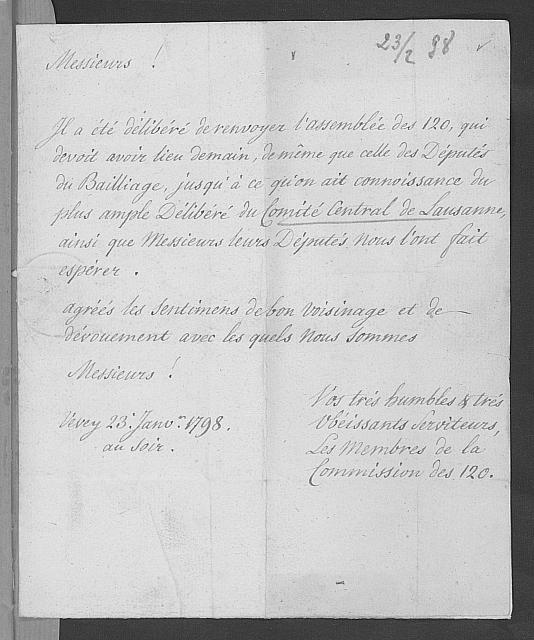 23/2 98
Messieurs !
Il a été délibéré de renvoyer l'assemblée des 120, qui
devoit avoir lieu demain, de même que celle des Députés
du Bailliage, jusqu'à ce qu'on ait connoissance du
plus ample Délibéré du Comité Central de Lausanne,
ainsi que Messieurs leurs Députés nous l'ont fait
espérer.
agréés les sentimens de bon voisinage et de
dévouement avec les quels nous sommes
Messieurs !
Vos trés humbles & trés
Obéissants Serviteurs,
Les Membres de la
Commission des 120.
Vevey 23.e Janv.er 1798.
au soir.